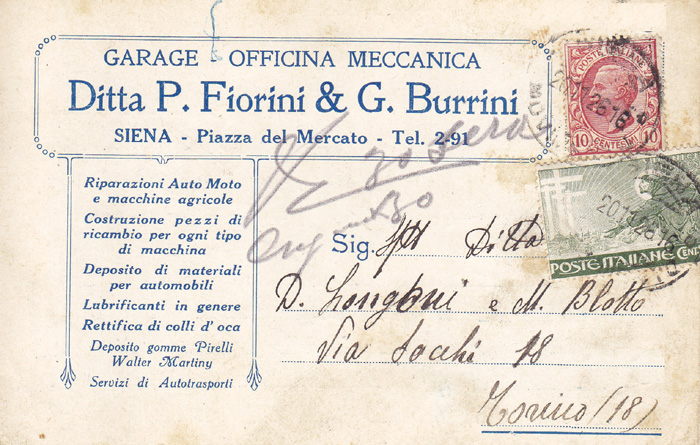 GARAGE - OFFICINA MECCANICA
Ditta P. Fiorini & G. Burrini
SIENA - Piazza del Mercato - Tel. 2-91
Riparazioni Auto Moto
e macchine agricole
Costruzione pezzi di
ricambio per ogni tipo
di macchina
Deposito di materiali
per automobili
Lubrificanti in genere
Rettifica di colli d'oca
Deposito gomme Pirelli
Walter Martiny
Servizi di Autotrasporti
POSTE ITALIANE
10 CENTESIMI 10
POSTE ITALIANE CENT
Sig. Spt Ditta
D. Longoni e M. Blotto
Via Sacchi 18
Torino (18)